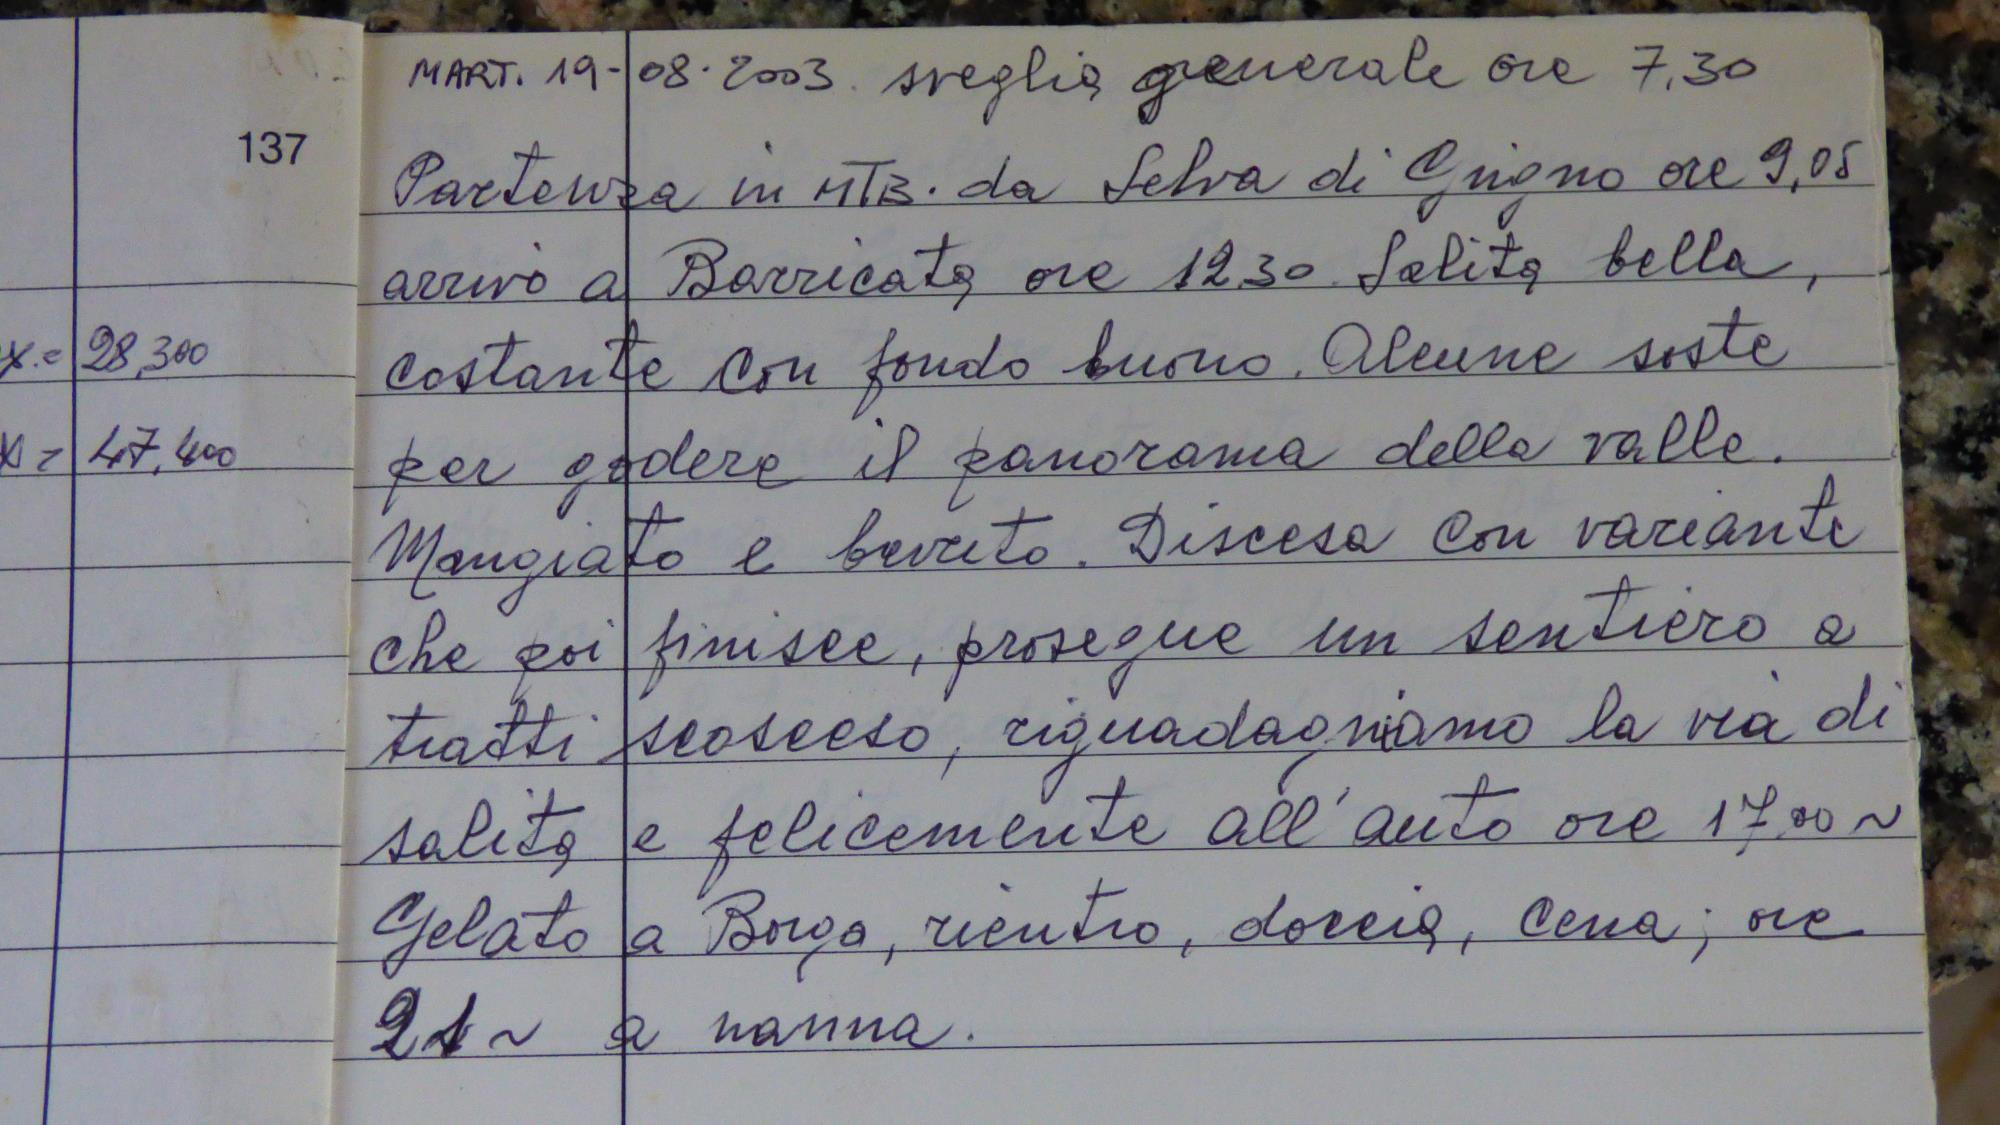 137
x = 28,300
x = 47,400
MART. 19-08.2003. sveglia generale ore 7,30
Partenza in MTB. da Selva di Grigno ore 9,05
arrivo a Barricata ore 12,30. Salita bella,
costante con fondo buono. Alcune soste
per godere il panorama della valle.
Mangiato e bevuto. Discesa con variante
che poi finisce, prosegue un sentiero a
tratti scosceso, riguadagniamo la via di
salita e felicemente all'auto ore 17,00 ~
Gelato a Borgo, rientro, doccia, cena; ore
21 ~ a nanna.